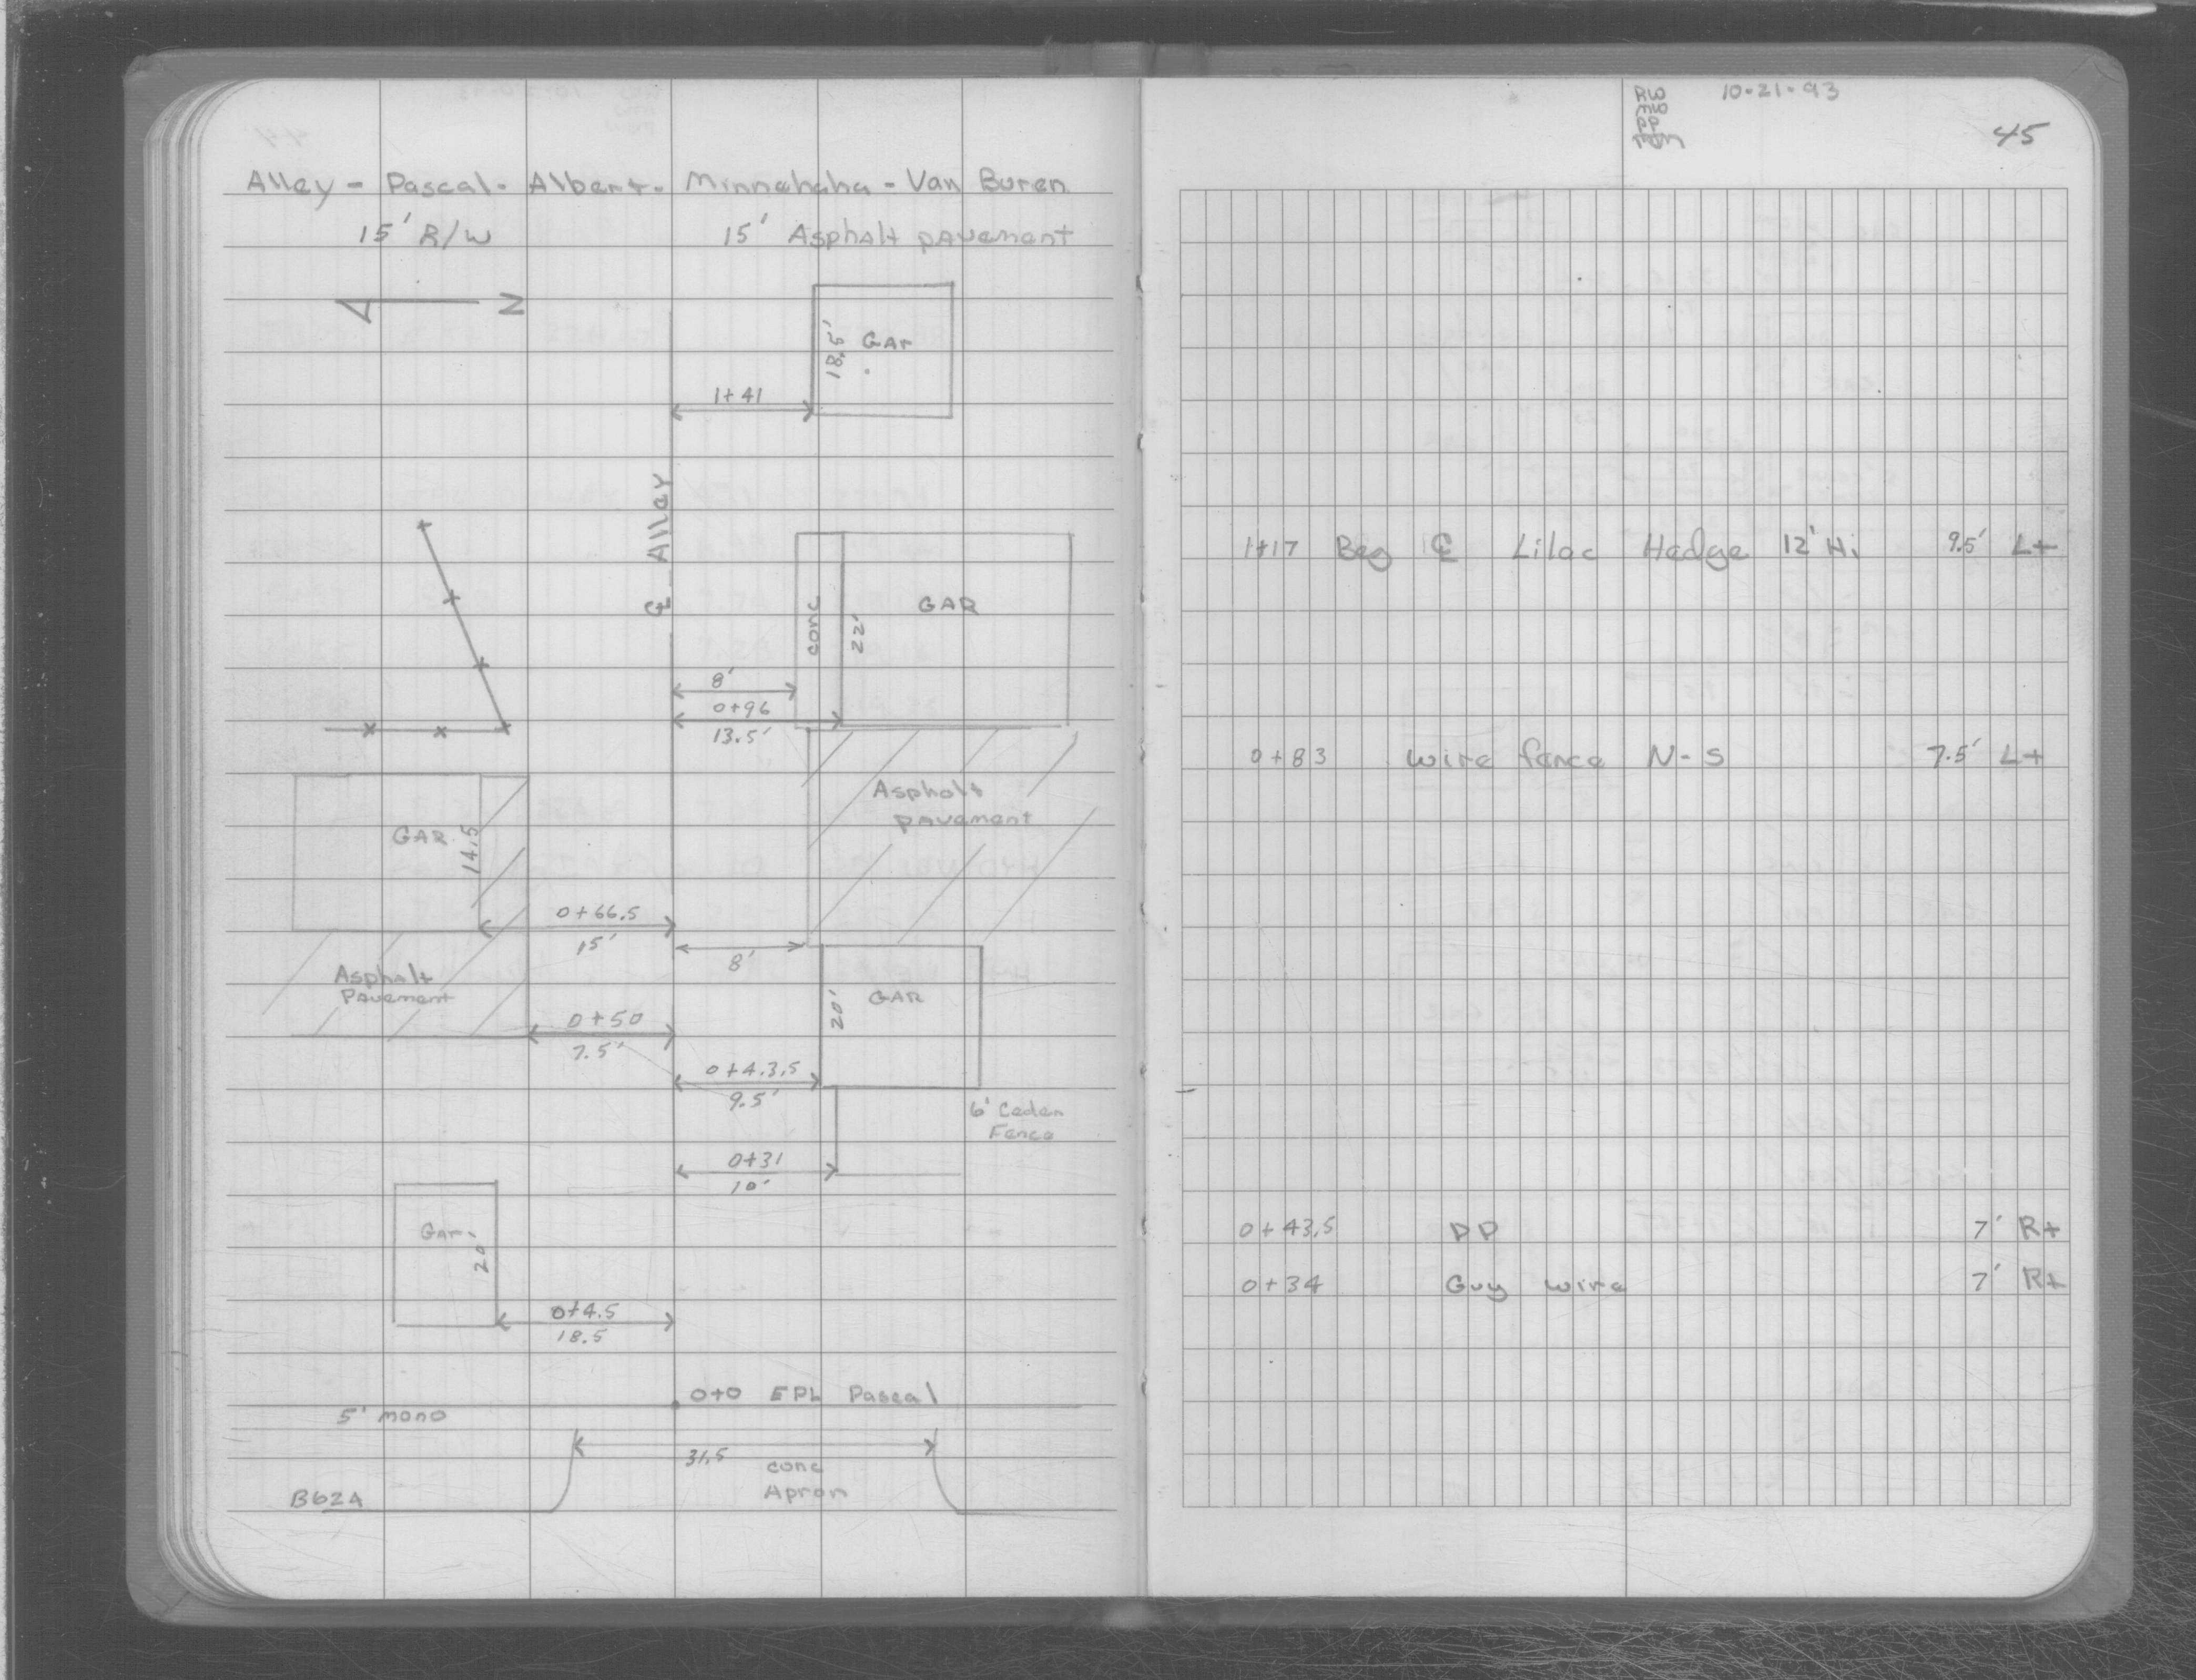 Alley - Pascal - Albert - Minnehaha - Van Buren
15' R/W
15' Asphalt pavement
N
18.5'
Gar
1+41
℄ Alley
conc
22'
GAR
8'
0+96
13.5'
GAR
14.5
Asphalt
pavement
0+66.5
15'
8'
Asphalt
Pavement
20'
GAR
0+50
7.5'
0+43.5
9.5'
6' Cedar
Fence
0+31
10'
Gar.
20'
0+4.5
18.5
0+0 EPL Pascal
5' mono
31.5
conc
Apron
B624
RW
MW
PP
10-21-93
45
1+17 Beg ℄ Lilac Hedge 12' Hi 9.5' Lt
0+83 wire fence N-S 7.5' Lt
0+43.5 PP 7' Rt
0+34 Guy wire 7' Rt